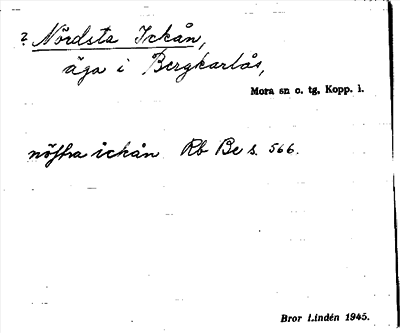 ? Nördsta Ickån,
äga i Bergkarlås,
Mora sn o. tg, Kopp. l.
nöstra ickån Rb Be s. 566.
Bror Lindén 1945.